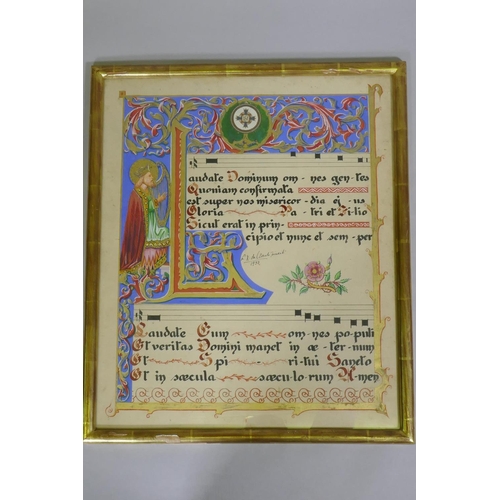 Laudate Dominum om-nes gen-tes
Quoniam confirmata
est super nos misericor-dia ej-us
Gloria Pa-tri et Filio
Sicut erat in prin-
cipio et nunc et sem-per
Laudate Eum om-nes po-puli
Et veritas Domini manet in æ-ter-num
Et Spi-ri-tui Sancto
Et in sæcula sæcu-lo-rum A-men